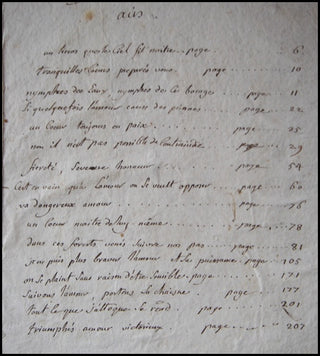 airs
un heros que le Ciel fit naitre.. page...... 6
tranquilles Coeurs preparés vous. page.... 10
nymphes des Eaux, nymphes de ce bocages... page... 11
Si quelquefois l'amour cause des peines... page.... 22
un Coeur toujours en paix... page.... 25
non il n'est pas possible de page... 29
fierté, Severe honneur... page.... 54
est ce vain que l'amour on se veult page... 60
va dangereux amour... page.... 76
un Coeur maitre de luy-même.... page... 78
dans ces forets venés suivre nos pas.... page.... 81
je ne puis plus braver l'amour et Sa puissance page.. 105
on se plaint Sans raison d'être Sensible. page........ 171
Suivons l'amour, portons Sa chaisne. page.... 177
tout ce que J'attaque Se rend. page.... 201
triomphés amour victorieux page.... 207